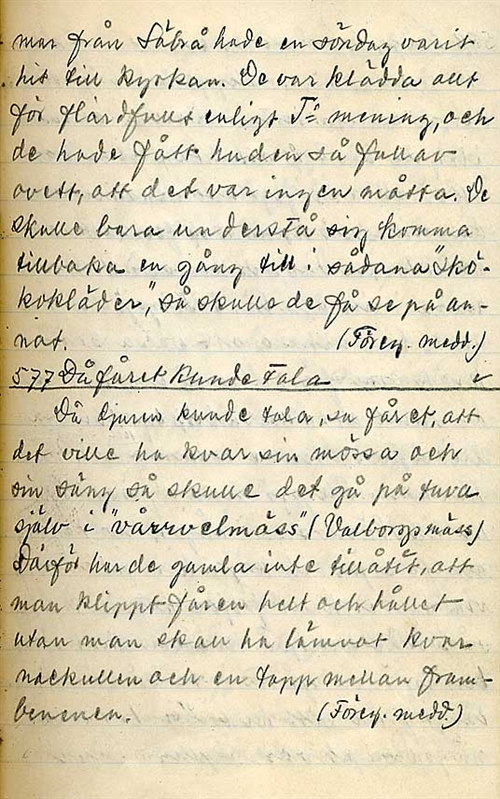 mar från Säbrå hade en söndag varit
hit till kyrkan. De var klädda allt
för flärdfullt enligt Ts mening, och
de hade fått huden så full av
ovett, att det var ingen måtta. De
skulle bara understå sig komma
tillbaka en gång till i sådana "skö-
kokläder", så skulle de få se på an-
nat. (Förey. medd.)
577 Då fåret kunde tala
Då djuren kunde tala, sa fåret, att
det ville ha kvar sin mössa och
sin säng så skulle det gå på tuva
själv i "vårrvelmäss" (Valborgsmäss)
Därför har de gamla inte tillåtit, att
man klippt fåren helt och hållet
utan man skall ha lämnat kvar
nackullen och en tapp mellan fram-
benenen. (Förey. medd.)